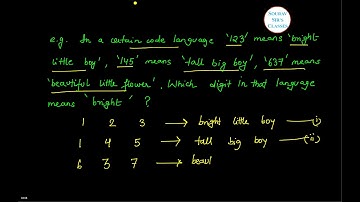 SOURAV
SIR'S
CLASSES
e.g. In a certain code language '123' means 'bright
little boy', '145' means 'tall big boy', '637' means
'beautiful little flower'. Which digit in that language
means 'bright' ?
1 2 3 → bright little boy —(i)
1 4 5 → tall big boy —(ii)
6 3 7 → beaul